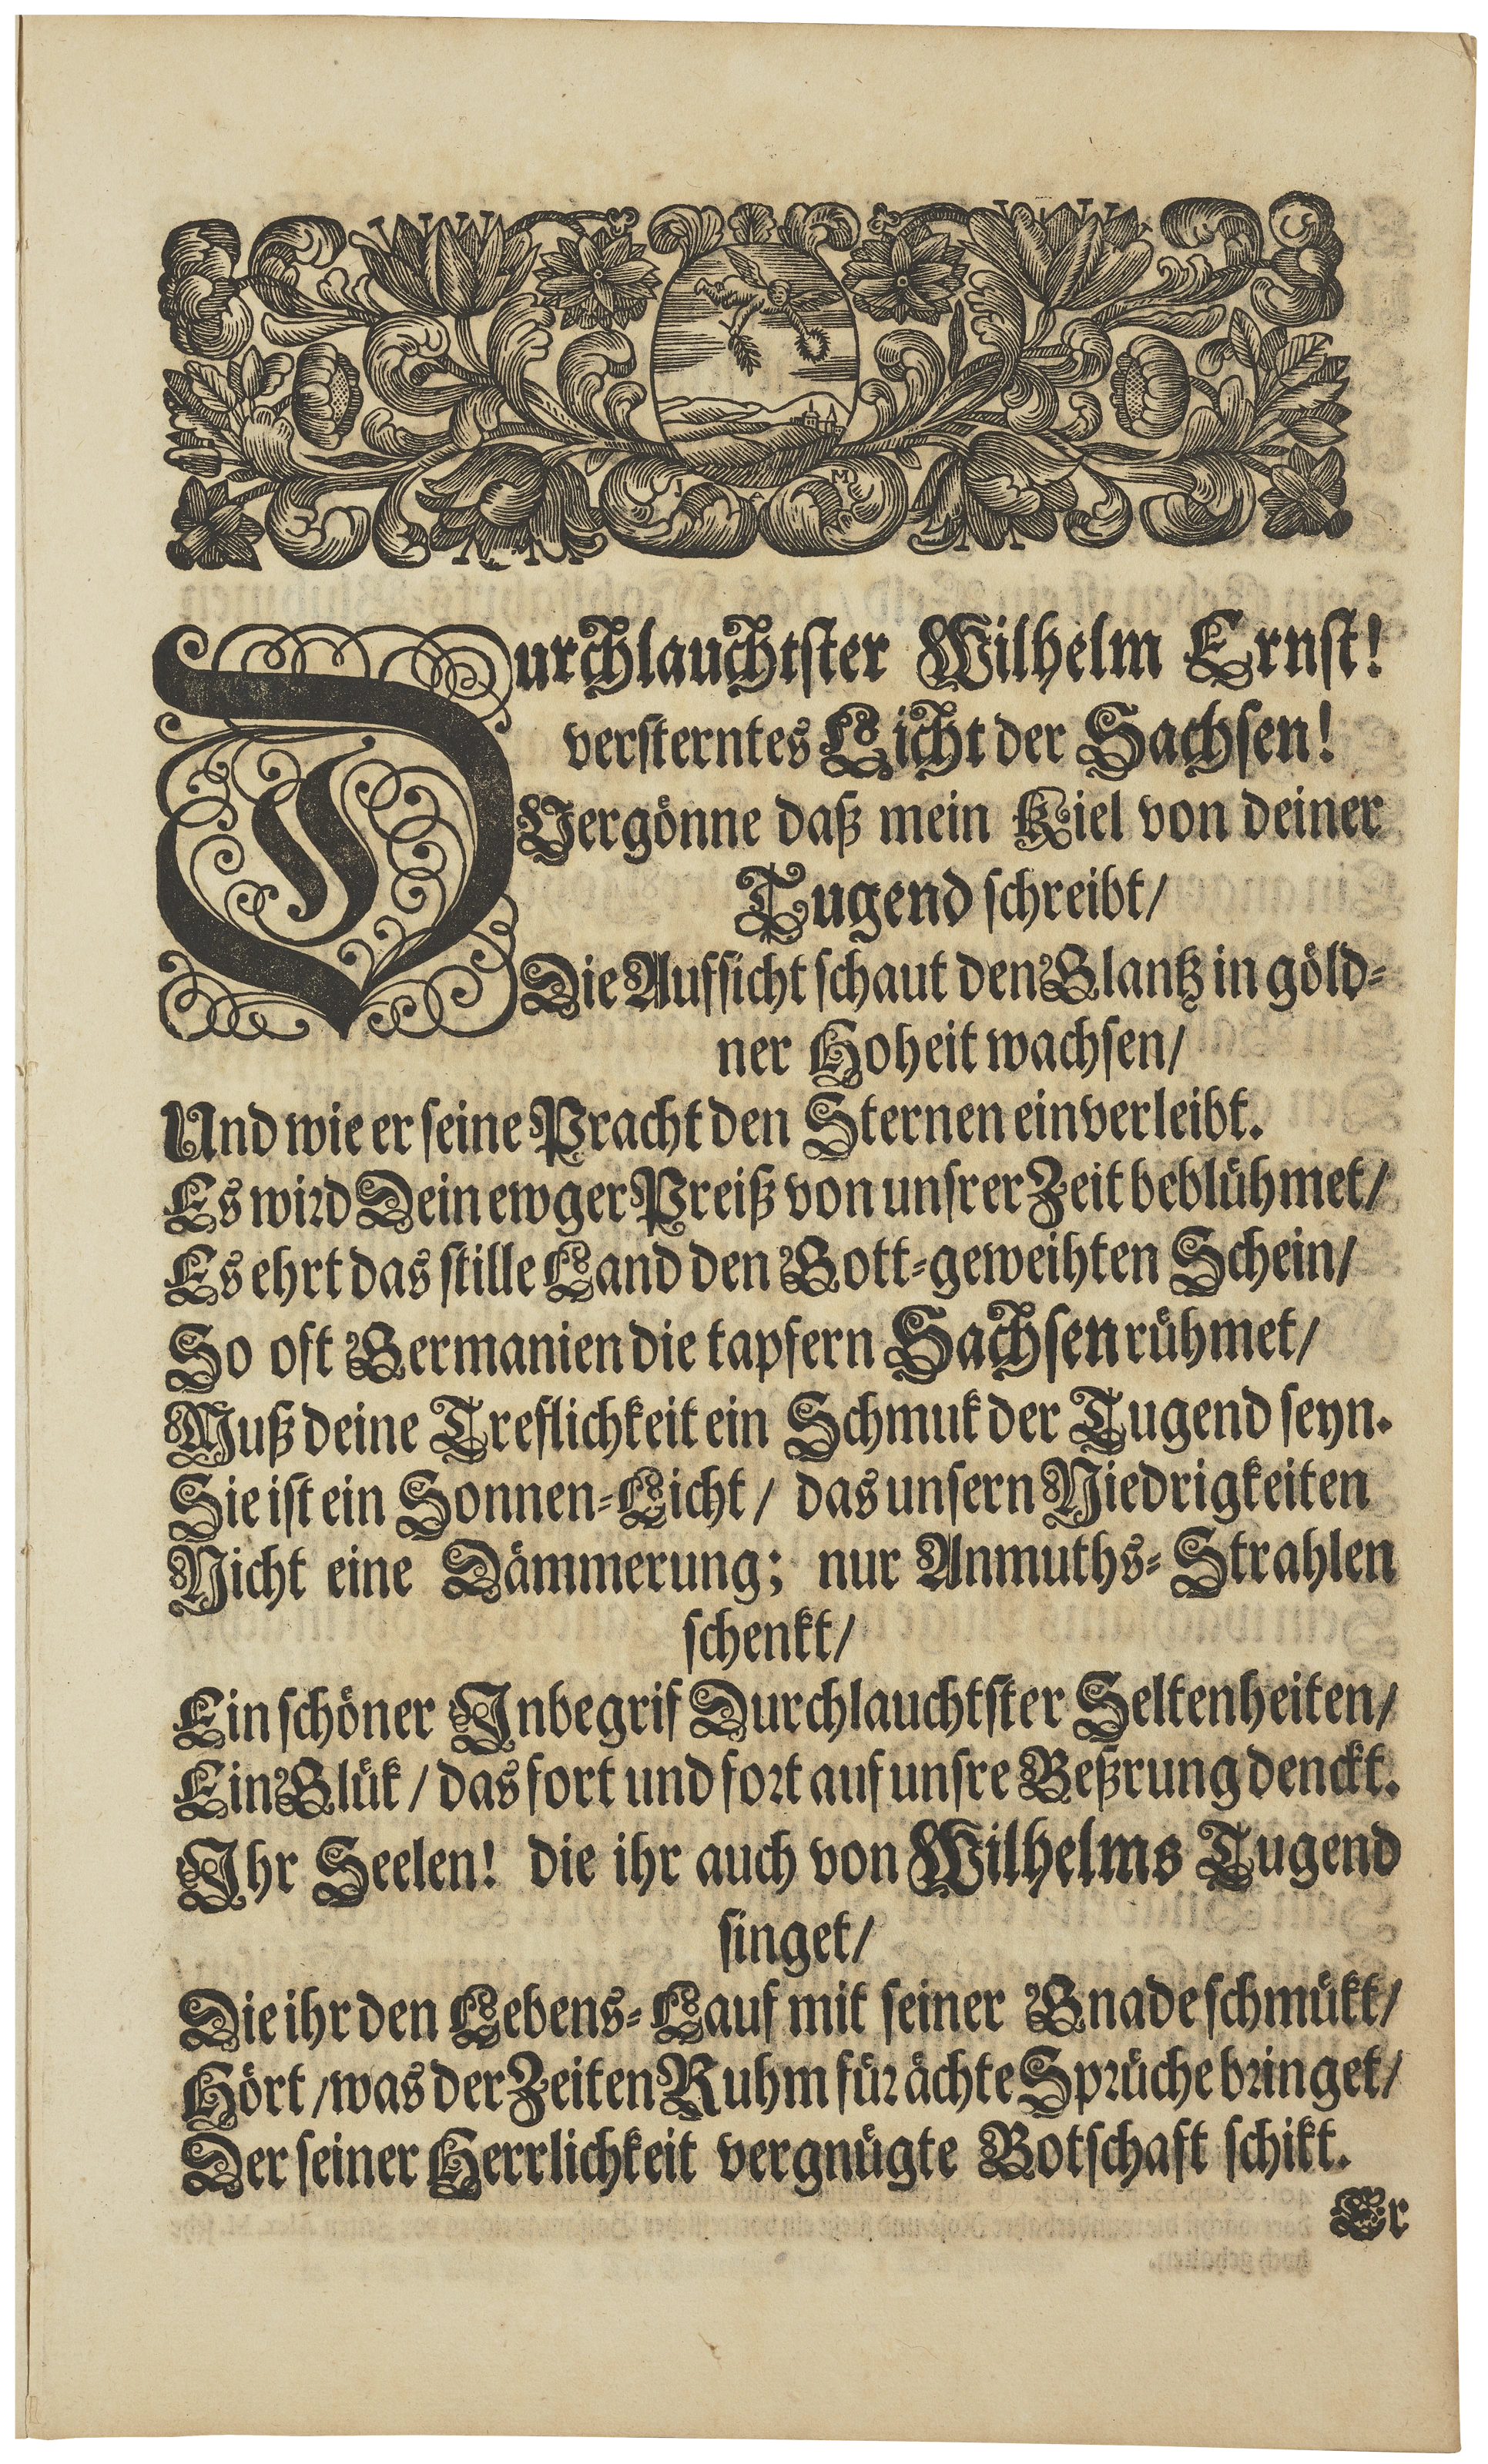 Durchlauchtster Wilhelm Ernst!
versterntes Licht der Sachsen!
Vergönne daß mein Kiel von deiner
Tugend schreibt/
Die Aufsicht schaut den Glantz in göld-
ner Hoheit wachsen/
Und wie er seine Pracht den Sternen einverleibt.
Es wird Dein ewger Preiß von unsrer Zeit beblühmet/
Es ehrt das stille Land den Gott-geweihten Schein/
So oft Germanien die tapfern Sachsen rühmet/
Muß deine Treflichkeit ein Schmuk der Tugend seyn.
Sie ist ein Sonnen-Licht/ das unsern Niedrigkeiten
Nicht eine Dämmerung; nur Anmuths-Strahlen
schenkt/
Ein schöner Inbegrif Durchlauchtster Seltenheiten/
Ein Glük/ das fort und fort auf unsre Beßrung denckt.
Ihr Seelen! die ihr auch von Wilhelms Tugend
singet/
Die ihr den Lebens-Lauf mit seiner Gnade schmükt/
Hört/ was der Zeiten Ruhm für ächte Sprüche bringet/
Der seiner Herrlichkeit vergnügte Botschaft schikt.
Er